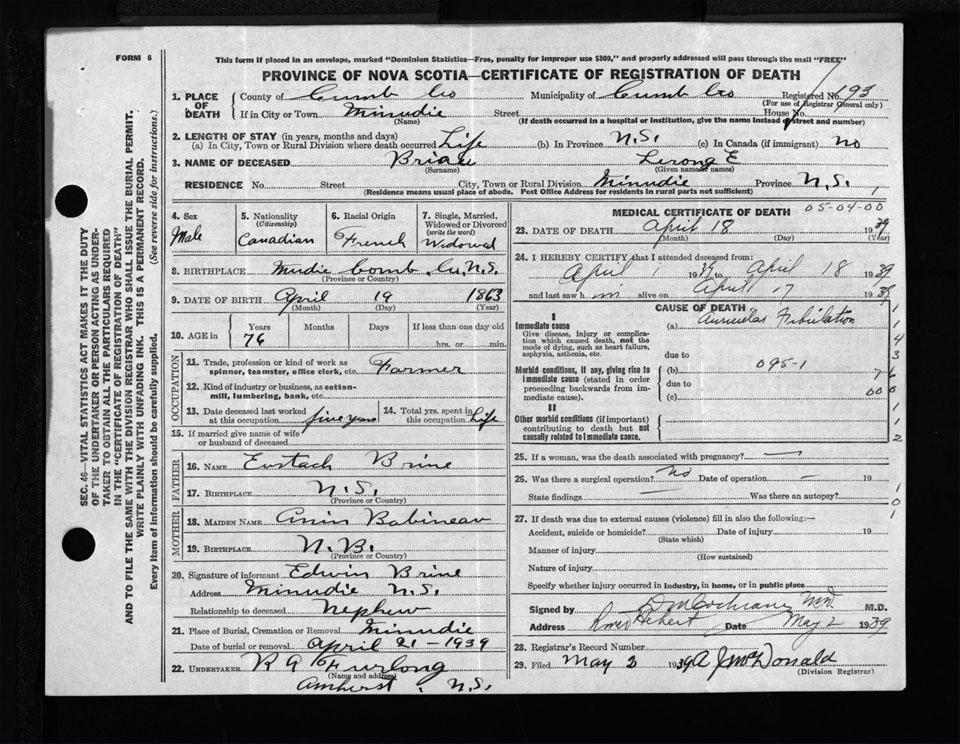 FORM 6
This form if placed in an envelope, marked "Dominion Statistics—Free, penalty for improper use $300," and properly addressed will pass through the mail "FREE"
PROVINCE OF NOVA SCOTIA—CERTIFICATE OF REGISTRATION OF DEATH
1. PLACE OF DEATH
County of Cumb Co Municipality of Cumb Co Registered No. 193
(For use of Registrar General only)
If in City or Town Minudie Street House No.
(Name) (If death occurred in a hospital or institution, give the name instead of street and number)
2. LENGTH OF STAY (in years, months and days)
(a) In City, Town or Rural Division where death occurred Life (b) In Province N.S. (c) In Canada (if immigrant) no
3. NAME OF DECEASED Brian E
(Surname) (Given name or names)
RESIDENCE No. Street City, Town or Rural Division Minudie Province N.S.
(Residence means usual place of abode. Post Office Address for residents in rural parts not sufficient)
4. Sex
Male
5. Nationality
(Citizenship)
Canadian
6. Racial Origin
French
7. Single, Married, Widowed or Divorced
(write the word)
Widowed
8. BIRTHPLACE Mudie Comb. Co. N.S.
(Province or Country)
9. DATE OF BIRTH April 19 1863
(Month) (Day) (Year)
10. AGE in Years Months Days If less than one day old
76 hrs. or min.
OCCUPATION
11. Trade, profession or kind of work as
spinner, teamster, office clerk, etc. Farmer
12. Kind of industry or business, as cotton-
mill, lumbering, bank, etc.
13. Date deceased last worked
at this occupation five years
14. Total yrs. spent in
this occupation Life
15. If married give name of wife
or husband of deceased
FATHER
16. NAME Eustach Brine
17. BIRTHPLACE N.S.
(Province or Country)
MOTHER
18. MAIDEN NAME Babineau
19. BIRTHPLACE N.B.
(Province or Country)
20. Signature of informant Edwin Brine
Address Minudie N.S.
Relationship to deceased Nephew
21. Place of Burial, Cremation or Removal Minudie
Date of burial or removal April 21 - 1939
22. UNDERTAKER Furlong
(Name and address)
Amherst, N.S.
MEDICAL CERTIFICATE OF DEATH 05-04-00
23. DATE OF DEATH April 18 1939
(Month) (Day) (Year)
24. I HEREBY CERTIFY that I attended deceased from:
April 1 1939 to April 18 1939
and last saw him alive on April 17 1939
CAUSE OF DEATH
I
Immediate cause
Give disease, injury or complica-
tion which caused death, not the
mode of dying, such as heart failure,
asphyxia, asthenia, etc.
(a) Auricular Fibrilation
due to
Morbid conditions, if any, giving rise to
immediate cause (stated in order
proceeding backwards from im-
mediate cause).
(b) 095-1
due to
(c)
II
Other morbid conditions (if important)
contributing to death but not
causally related to immediate cause.
25. If a woman, was the death associated with pregnancy? —
26. Was there a surgical operation? No Date of operation — 19
State findings — Was there an autopsy?
27. If death was due to external causes (violence) fill in also the following:—
Accident, suicide or homicide? Date of injury 19
(State which)
Manner of injury
(How sustained)
Nature of injury
Specify whether injury occurred in industry, in home, or in public place
Signed by Cochrane M.D. M.D.
Address River Hebert Date May 2 1939
28. Registrar's Record Number
29. Filed May 2 1939 A J McDonald
(Division Registrar)
SEC. 46—VITAL STATISTICS ACT MAKES IT THE DUTY
OF THE UNDERTAKER OR PERSON ACTING AS UNDER-
TAKER TO OBTAIN ALL THE PARTICULARS REQUIRED
IN THE "CERTIFICATE OF DEATH"
AND TO FILE THE SAME WITH THE DIVISION REGISTRAR WHO SHALL ISSUE THE BURIAL PERMIT.
WRITE PLAINLY WITH UNFADING INK. THIS IS A PERMANENT RECORD.
Every item of information should be carefully supplied. (See reverse side for instructions.)